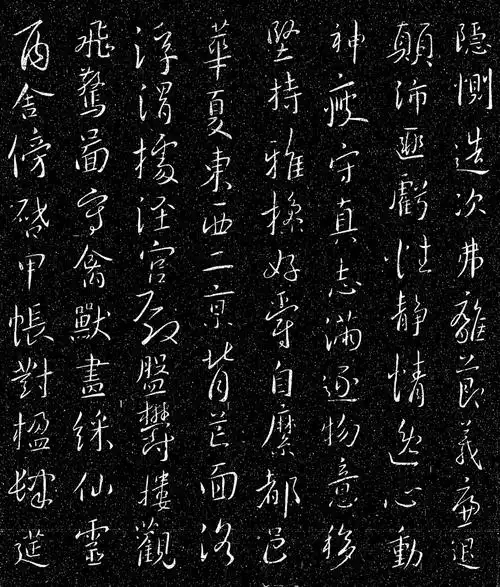 隱惻造次弗離節義廉退
顛沛匪虧性靜情逸心動
神疲守真志滿逐物意移
堅持雅操好爵自縻都邑
華夏東西二京背芒面洛
浮渭據涇宮殿盤鬱樓觀
飛驚圖寫禽獸畫綵仙靈
丙舍傍啓甲帳對楹肆筵